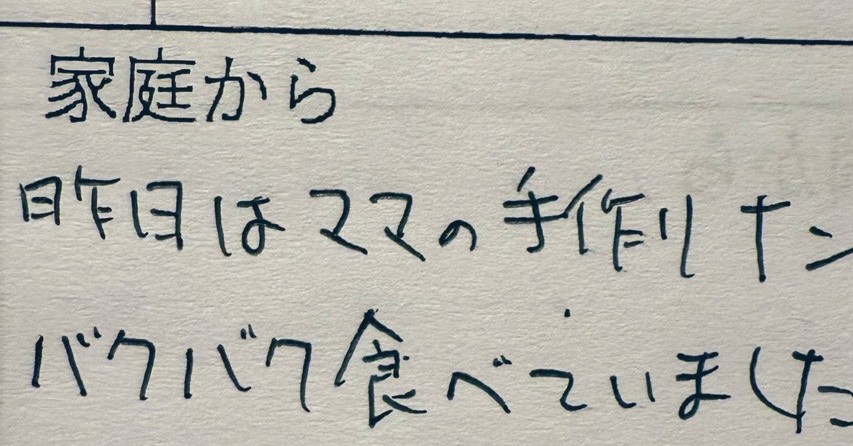 家庭から
昨日はママの手作りナン
バクバク食べていました